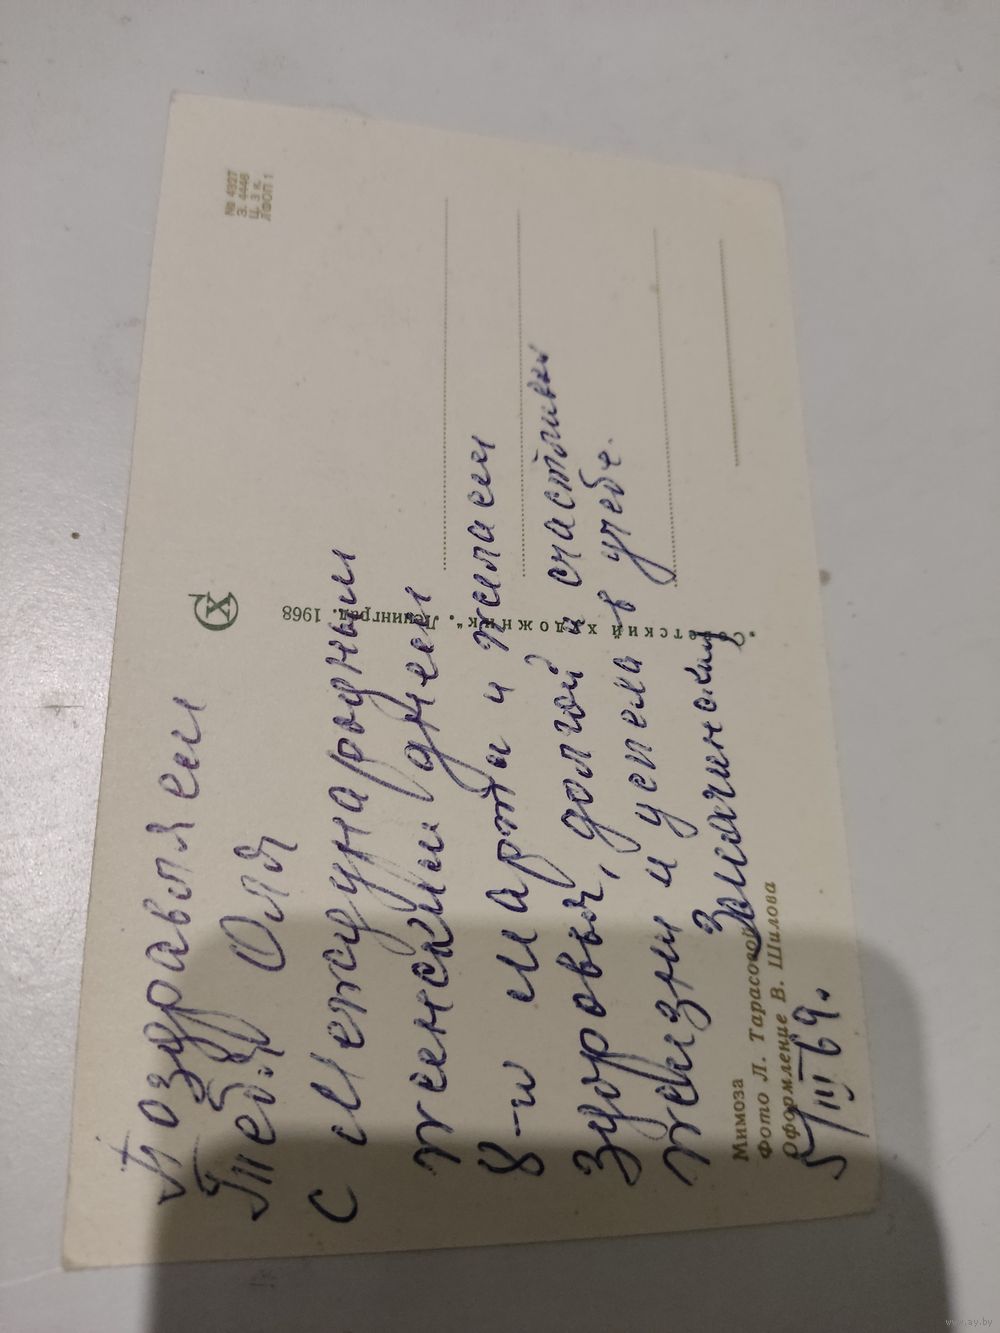 Поздравляем
Тебя Оля
с Международным
женским днем
8-м марта и желаем
здоровья, долгой и счастливой
жизни и успела в учебе.
5/III 69.
Мимоза
Фото Л.
Оформление В. Шилова
художник". Ленинград. 1968
№ 4927
З. 4446
Ц. 3 к.
ЛФОП 1
www.ay.by